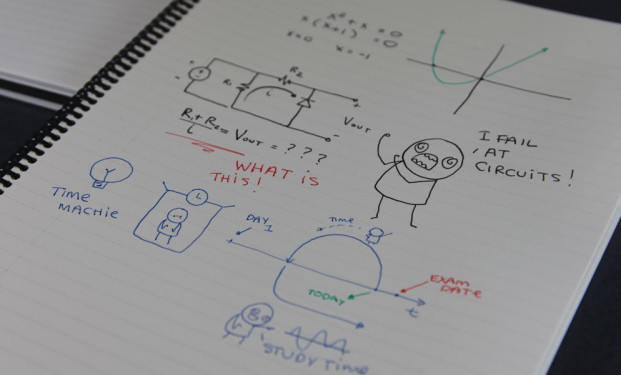 x² + x = 0
x(x+1) = 0
x=0 x = -1
+
-
R1
R2
i
+
-
VOUT
R1 + R2 = VOUT = ? ? ?
i
WHAT IS
THIS!
I FAIL
AT
CIRCUITS!
TIME
MACHIE
DAY
1
TIME
TODAY
EXAM
DATE
t
STUDY TIME